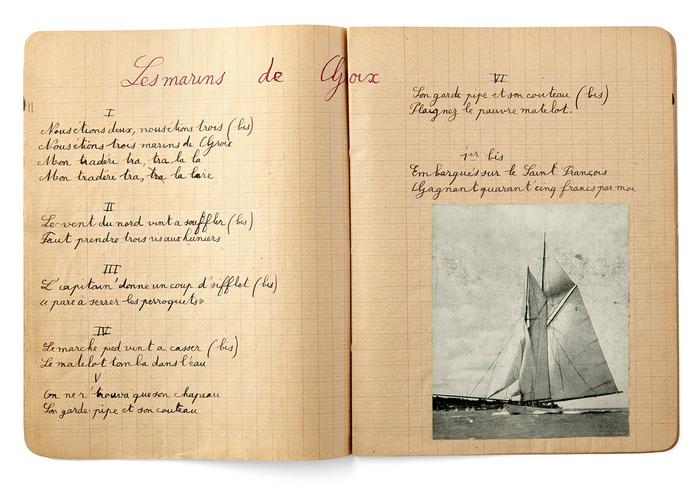 Les marins de Groix
I
Nous étions deux, nous étions trois (bis)
Nous étions trois marins de Groix
Mon tradéri tra, tra la la
Mon tradéri tra, tra la laire
II
Le vent du nord vint a souffler (bis)
Faut prendre trois ris aux huniers
III
L'capitain' donne un coup d'sifflet (bis)
"a pare a serrer les perroquets"
IV
Le marche pied vint a casser (bis)
Le matelot tomba dans l'eau
V
On ne r'trouva que son chapeau
Son garde-pipe et son couteau
VI
Son garde pipe et son couteau (bis)
Plaignez le pauvre matelot.
1er bis
Embarqués sur le Saint François
Gagnant quarant'cinq francs par moi